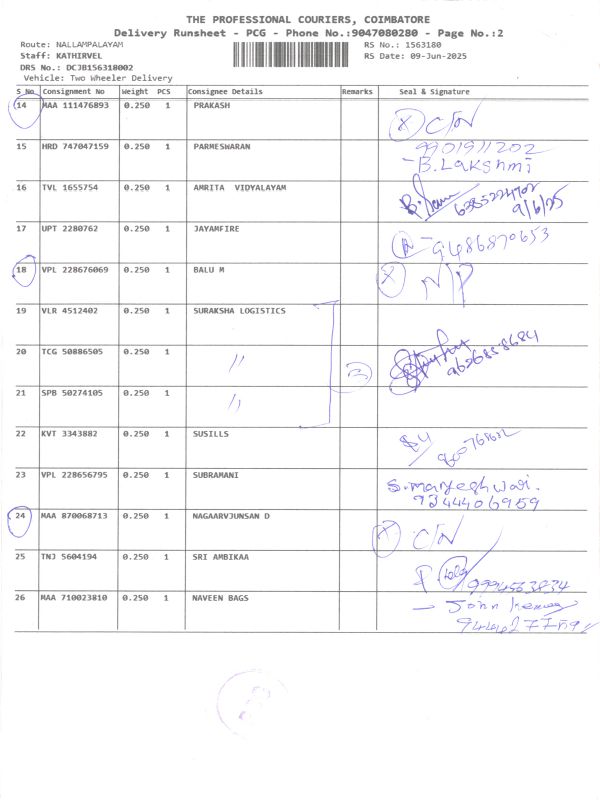 THE PROFESSIONAL COURIERS, COIMBATORE
Delivery Runsheet - PCG - Phone No.:9047080280 - Page No.:2
Route: NALLAMPALAYAM RS No.: 1563180
Staff: KATHIRVEL RS Date: 09-Jun-2025
DRS No.: DCJB156318002
Vehicle: Two Wheeler Delivery
S No Consignment No Weight PCS Consignee Details Remarks Seal & Signature
14 MAA 111476893 0.250 1 PRAKASH X C/N
15 HRD 747047159 0.250 1 PARMESWARAN 9901911202
- B.Lakshmi
16 TVL 1655754 0.250 1 AMRITA VIDYALAYAM
9/6/25
17 UPT 2280762 0.250 1 JAYAMFIRE 9486870653
18 VPL 228676069 0.250 1 BALU M X N/P
19 VLR 4512402 0.250 1 SURAKSHA LOGISTICS
20 TCG 50886505 0.250 1 " 3
21 SPB 50274105 0.250 1 "
22 KVT 3343882 0.250 1 SUSILLS
23 VPL 228656795 0.250 1 SUBRAMANI
9344406959
24 MAA 870068713 0.250 1 NAGAARVJUNSAN D X C/N
25 TNJ 5604194 0.250 1 SRI AMBIKAA
26 MAA 710023810 0.250 1 NAVEEN BAGS - John